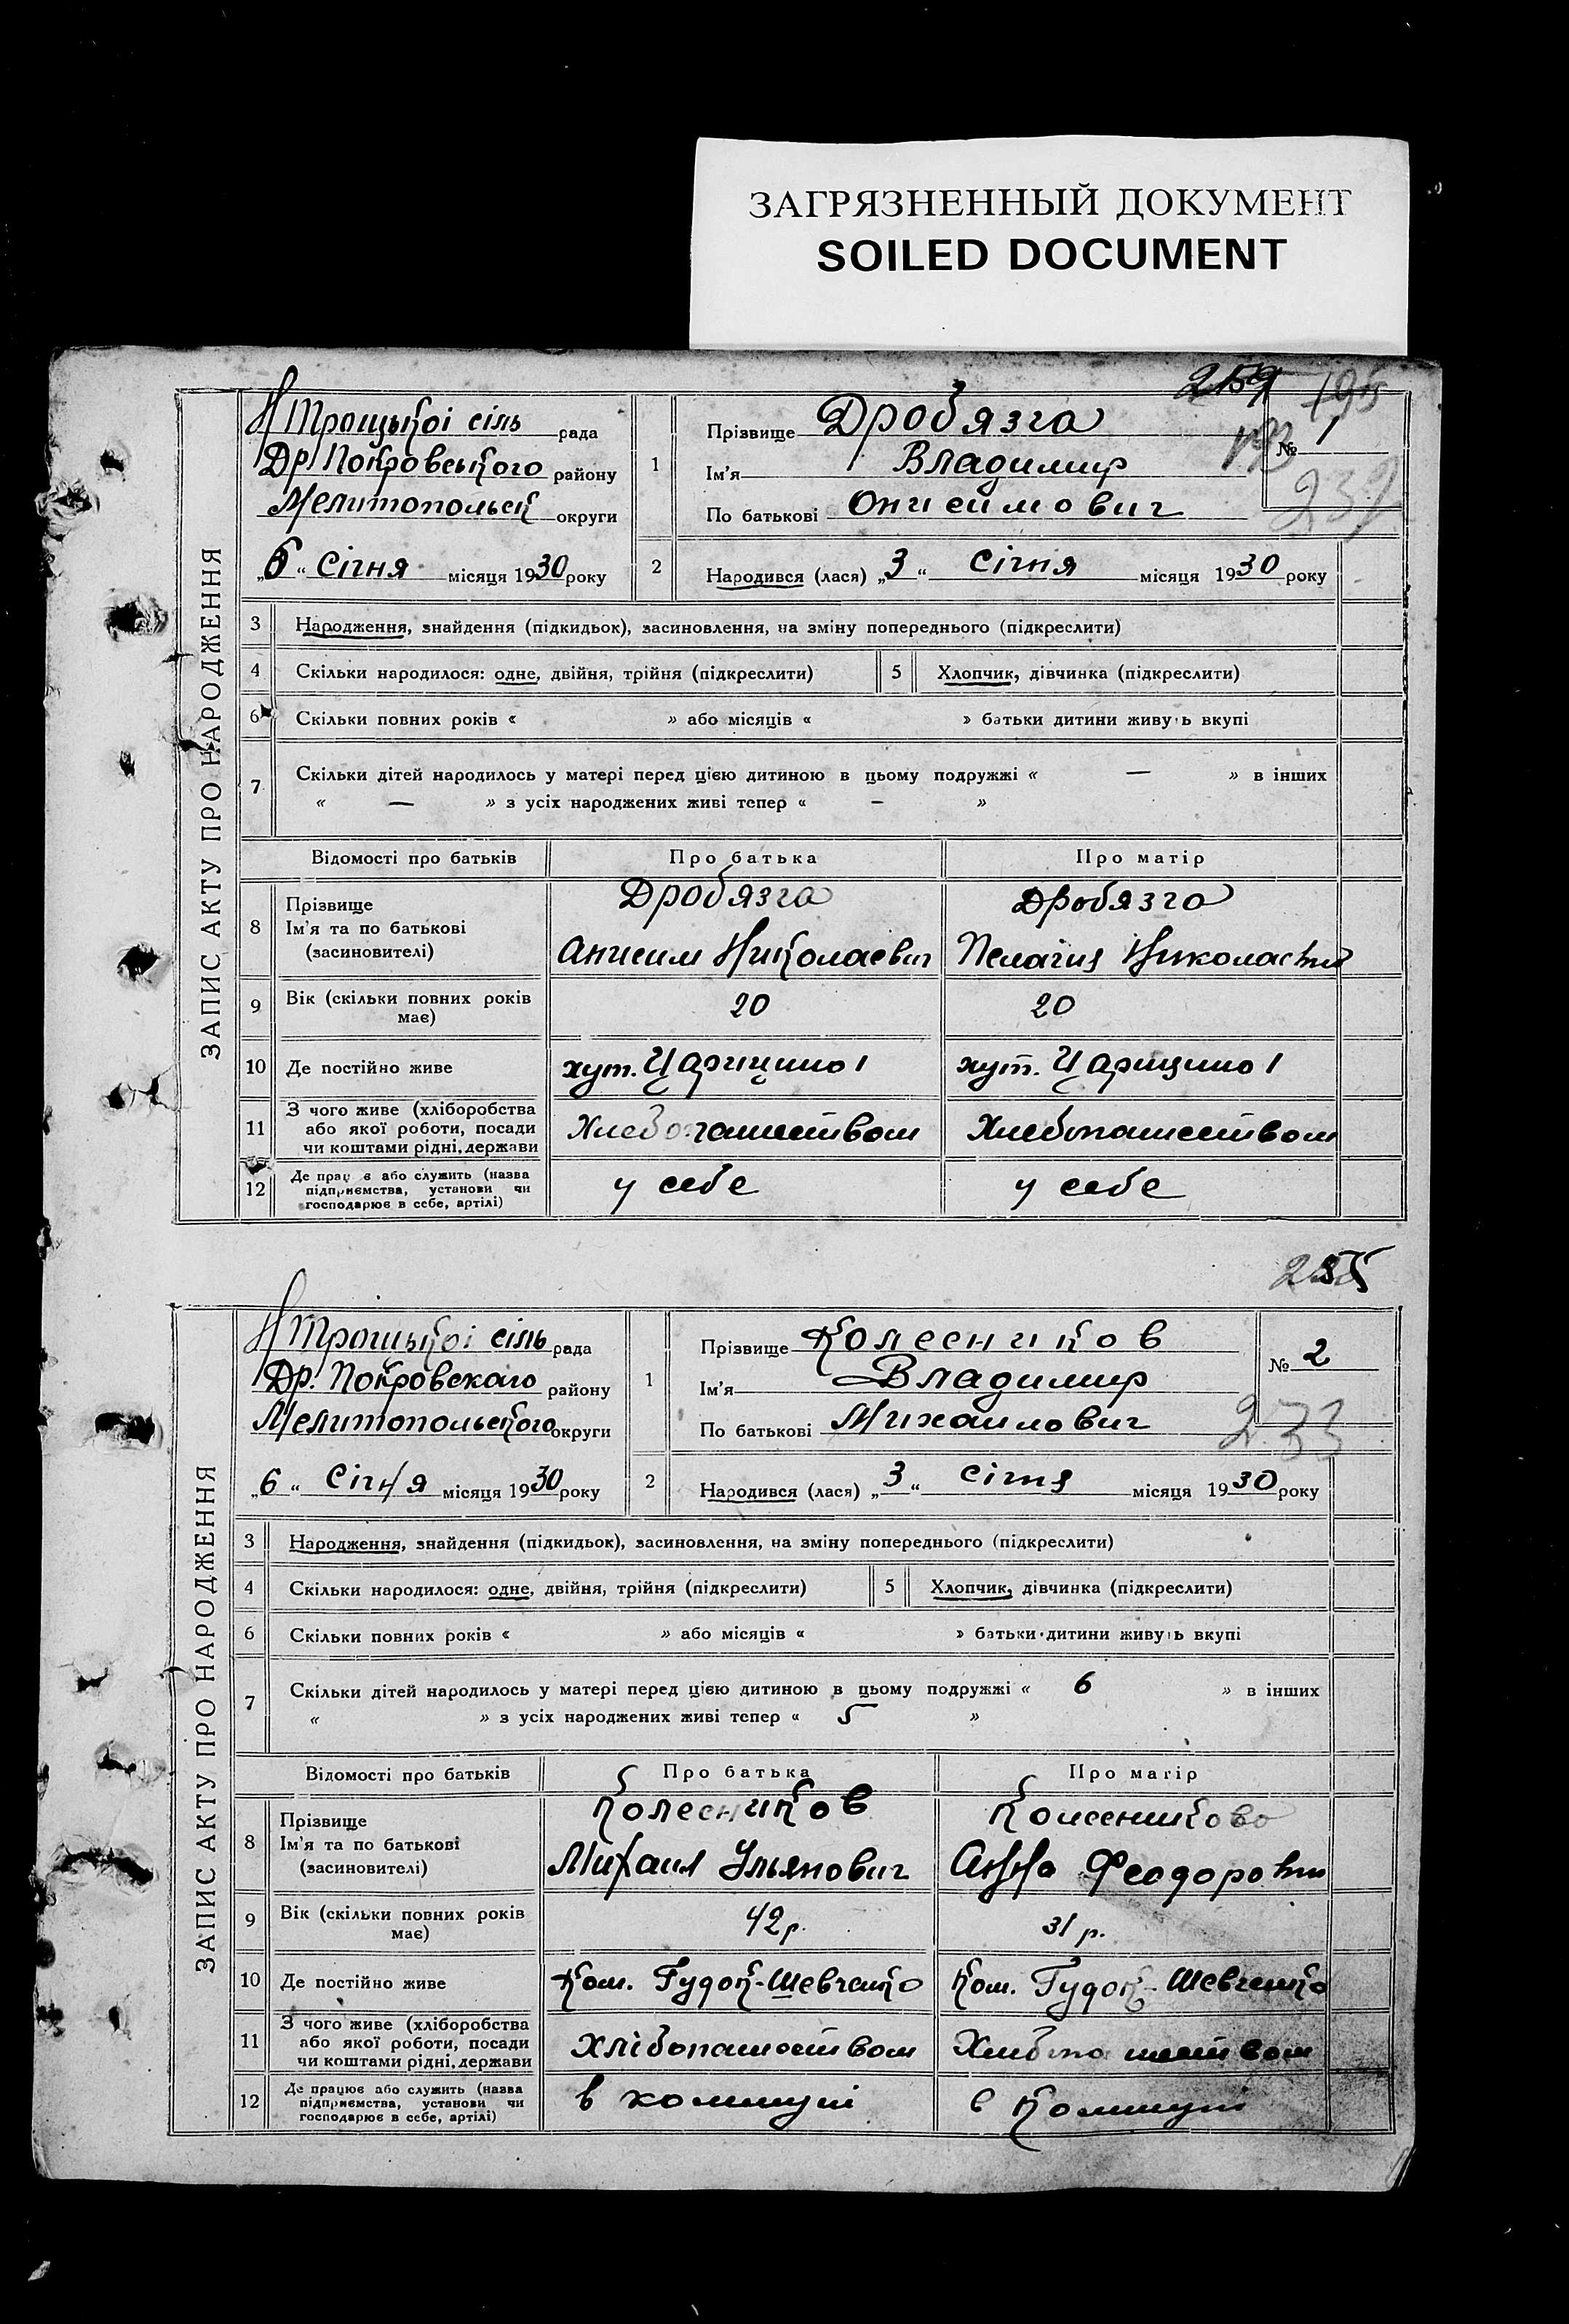 ЗАГРЯЗНЕННЫЙ ДОКУМЕНТ
SOILED DOCUMENT
ЗАПИС АКТУ ПРО НАРОДЖЕННЯ
Н Троцької сіль рада
Др. Покровського району
Мелитопольськ округи
„6“ Січня місяця 1930 року
1
Прізвище Дробязга
Ім'я Владимир
По батькові Онисимович
№ 1
2 Народився (лася) „3“ Січня місяця 1930 року
3 Народження, знайдення (підкидьок), засиновлення, на зміну попереднього (підкреслити)
4 Скільки народилося: одне, двійня, трійня (підкреслити) 5 Хлопчик, дівчинка (підкреслити)
6 Скільки повних років « » або місяців « » батьки дитини живуть вкупі
7 Скільки дітей народилось у матері перед цією дитиною в цьому подружжі « — » в інших
« — » з усіх народжених живі тепер « – »
Відомості про батьків Про батька Про матір
8 Прізвище Ім'я та по батькові (засиновителі)
Дробязга Дробязга
Анисим Николаевич Пелагия Николаевн
9 Вік (скільки повних років має) 20 20
10 Де постійно живе хут. Царицино 1 хут. Царицино 1
11 З чого живе (хліборобства
або якої роботи, посади
чи коштами рідні, держави
Хлебопашеством Хлебопашеством
12 Де працює або служить (назва
підприємства, установи чи
господарює в себе, артілі)
у себе у себе
ЗАПИС АКТУ ПРО НАРОДЖЕННЯ
Н Троцької сіль рада
Др. Покровскаго району
Мелитопольського округи
„6“ Січня місяця 1930 року
1
Прізвище Колесников
Ім'я Владимир
По батькові Михаилович
№ 2
233
2 Народився (лася) „3“ січня місяця 1930 року
3 Народження, знайдення (підкидьок), засиновлення, на зміну попереднього (підкреслити)
4 Скільки народилося: одне, двійня, трійня (підкреслити) 5 Хлопчик, дівчинка (підкреслити)
6 Скільки повних років « » або місяців « » батьки дитини живуть вкупі
7 Скільки дітей народилось у матері перед цією дитиною в цьому подружжі « 6 » в інших
« » з усіх народжених живі тепер « 5 »
Відомості про батьків Про батька Про матір
8 Прізвище Ім'я та по батькові (засиновителі)
Колесников Колесникова
Михаил Ульянович Анна Феодоровн
9 Вік (скільки повних років має) 42 р. 31 р.
10 Де постійно живе Ком. Гудок-Шевченко Ком. Гудок-Шевченко
11 З чого живе (хліборобства
або якої роботи, посади
чи коштами рідні, держави
Хлібопашеством Хлибопашеством
12 Де працює або служить (назва
підприємства, установи чи
господарює в себе, артілі)
в коммуні в коммуні